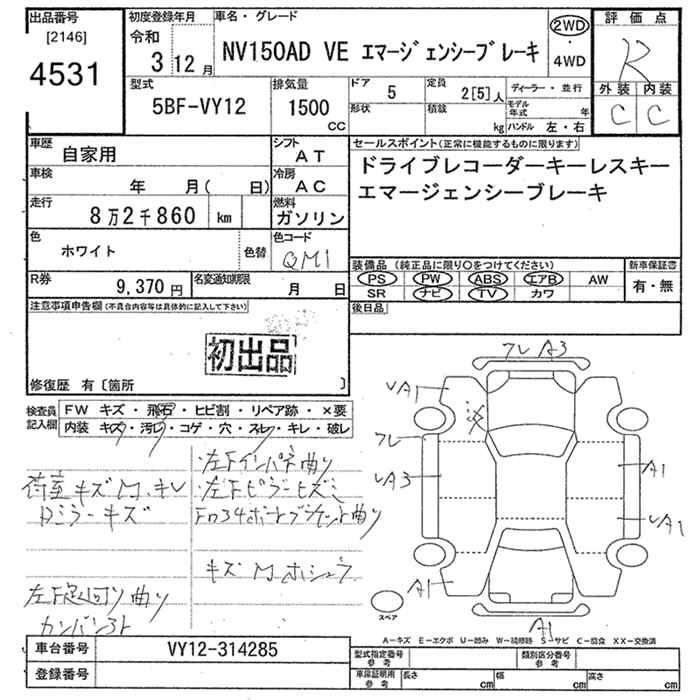 出品番号
[2146]
4531
初度登録年月
令和
3 12月
車名・グレード
NV150AD VE エマージェンシーブレーキ
2WD
・
4WD
評価点
R
外装 内装
C C
型式
5BF-VY12
排気量
1500
CC
ドア
5
形状
定員
2[5]人
積載
kg
ディーラー・並行
モデル年式 年
ハンドル 左・右
車歴
自家用
シフト
AT
車検
年 月( 日)
冷房
AC
走行
8万2千860 km
燃料
ガソリン
色
ホワイト
色替
色コード
QM1
R券
9,370円
名変通知期限
月 日
セールスポイント(正常に機能するものに限ります)
ドライブレコーダーキーレスキー
エマージェンシーブレーキ
装備品(純正品に限り〇をつけてください)
PS PW ABS エアB AW
SR ナビ TV カワ
新車保証書
有・無
後日品
注意事項申告欄(不具合内容等は具体的に記入して下さい)
初出品
修復歴 有〔箇所 〕
検査員
記入欄
FW キズ・飛石・ヒビ割・リペア跡・×要
内装 キズ・汚レ・コゲ・穴・スレ・キレ・破レ
荷室キズM.キレ
Dミラーキズ
左F足回り曲り
カンバン3ト
左Fインパネ曲り
左Fピラーヒズミ
キズMホシュウ
フレ A3
A1
フレ
A3
A1
A1
A1
A1
スペア
A-キズ E-エクボ U-凹み W-補修跡 S-サビ C-腐食 XX-交換済
車台番号
VY12-314285
登録番号
型式指定番号
参考
類別区分番号
参考
車庫証明用
参考
長さ cm
幅 cm
高さ cm